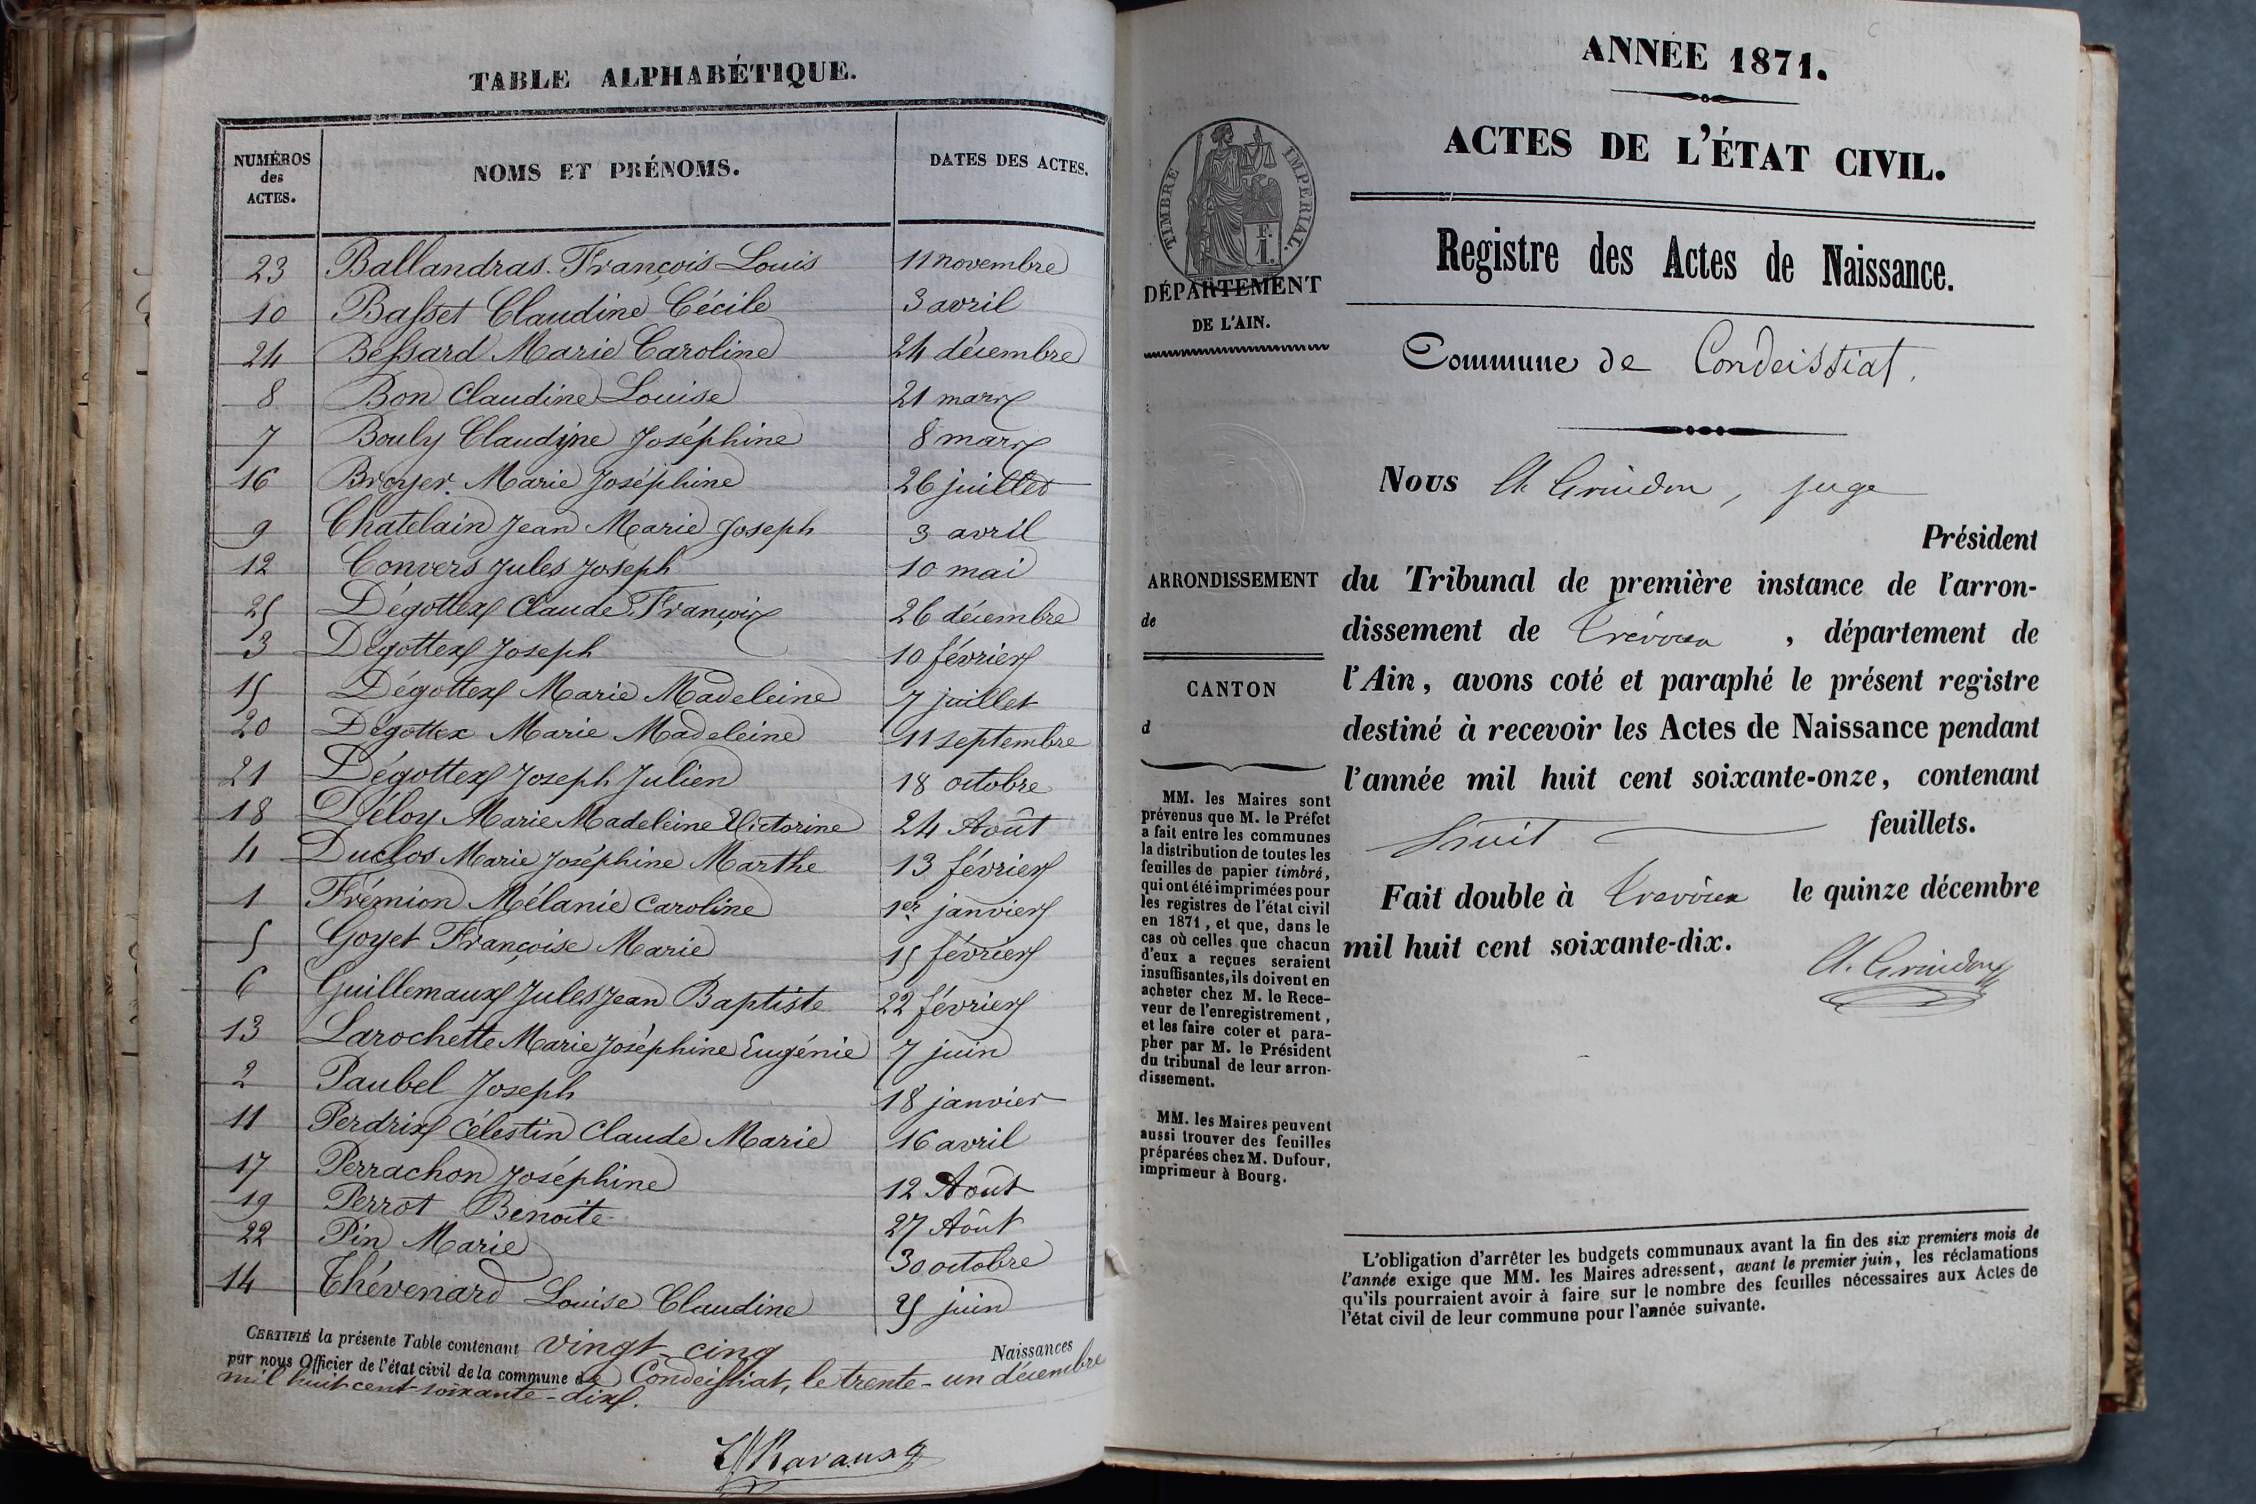 TABLE ALPHABÉTIQUE.
NUMÉROS des ACTES. NOMS ET PRÉNOMS. DATES DES ACTES.
23 Ballandras François Louis 11 novembre
10 Basset Claudine Cécile 3 avril
24 Bessard Marie Caroline 24 décembre
8 Bon Claudine Louise 21 mars
7 Bouly Claudine Joséphine 8 mars
16 Broyer Marie Joséphine 26 juillet
9 Chatelain Jean Marie Joseph 3 avril
12 Convers Jules Joseph 10 mai
25 Dégottex Claude François 26 décembre
3 Dégottex Joseph 10 février
15 Dégottex Marie Madeleine 7 juillet
20 Dégottex Marie Madeleine 11 septembre
21 Dégottex Joseph Julien 18 octobre
18 Déloy Marie Madeleine Victorine 24 Août
4 Duclos Marie Joséphine Marthe 13 février
1 Frémion Mélanie Caroline 1er janvier
5 Goyet Françoise Marie 15 février
6 Guillemaux Jules Jean Baptiste 22 février
13 Larochette Marie Joséphine Eugénie 7 juin
2 Paubel Joseph 18 janvier
11 Perdrix Célestin Claude Marie 16 avril
17 Perrachon Joséphine 12 Août
19 Perrot Benoite 27 Août
22 Pin Marie 30 octobre
14 Thévenard Louise Claudine juin
CERTIFIÉ la présente Table contenant vingt-cinq Naissances
par nous Officier de l'état civil de la commune de Condeissiat, le trente-un décembre
mil huit cent soixante-dix.
Ravaux
ANNÉE 1871.
ACTES DE L'ÉTAT CIVIL.
TIMBRE IMPÉRIAL.
F.
1.
DÉPARTEMENT
DE L'AIN.
Registre des Actes de Naissance.
Commune de Condeissiat.
Nous A. Grindon, juge
Président
du Tribunal de première instance de l'arron-
dissement de Trévoux, département de
l'Ain, avons coté et paraphé le présent registre
destiné à recevoir les Actes de Naissance pendant
l'année mil huit cent soixante-onze, contenant
huit feuillets.
Fait double à Trévoux le quinze décembre
mil huit cent soixante-dix.
A. Grindon
ARRONDISSEMENT
de
CANTON
d
MM. les Maires sont
prévenus que M. le Préfet
a fait entre les communes
la distribution de toutes les
feuilles de papier timbré,
qui ont été imprimées pour
les registres de l'état civil
en 1871, et que, dans le
cas où celles que chacun
d'eux a reçues seraient
insuffisantes, ils doivent en
acheter chez M. le Rece-
veur de l'enregistrement,
et les faire coter et para-
pher par M. le Président
du tribunal de leur arron-
dissement.
MM. les Maires peuvent
aussi trouver des feuilles
préparées chez M. Dufour,
imprimeur à Bourg.
L'obligation d'arrêter les budgets communaux avant la fin des six premiers mois de
l'année exige que MM. les Maires adressent, avant le premier juin, les réclamations
qu'ils pourraient avoir à faire sur le nombre des feuilles nécessaires aux Actes de
l'état civil de leur commune pour l'année suivante.